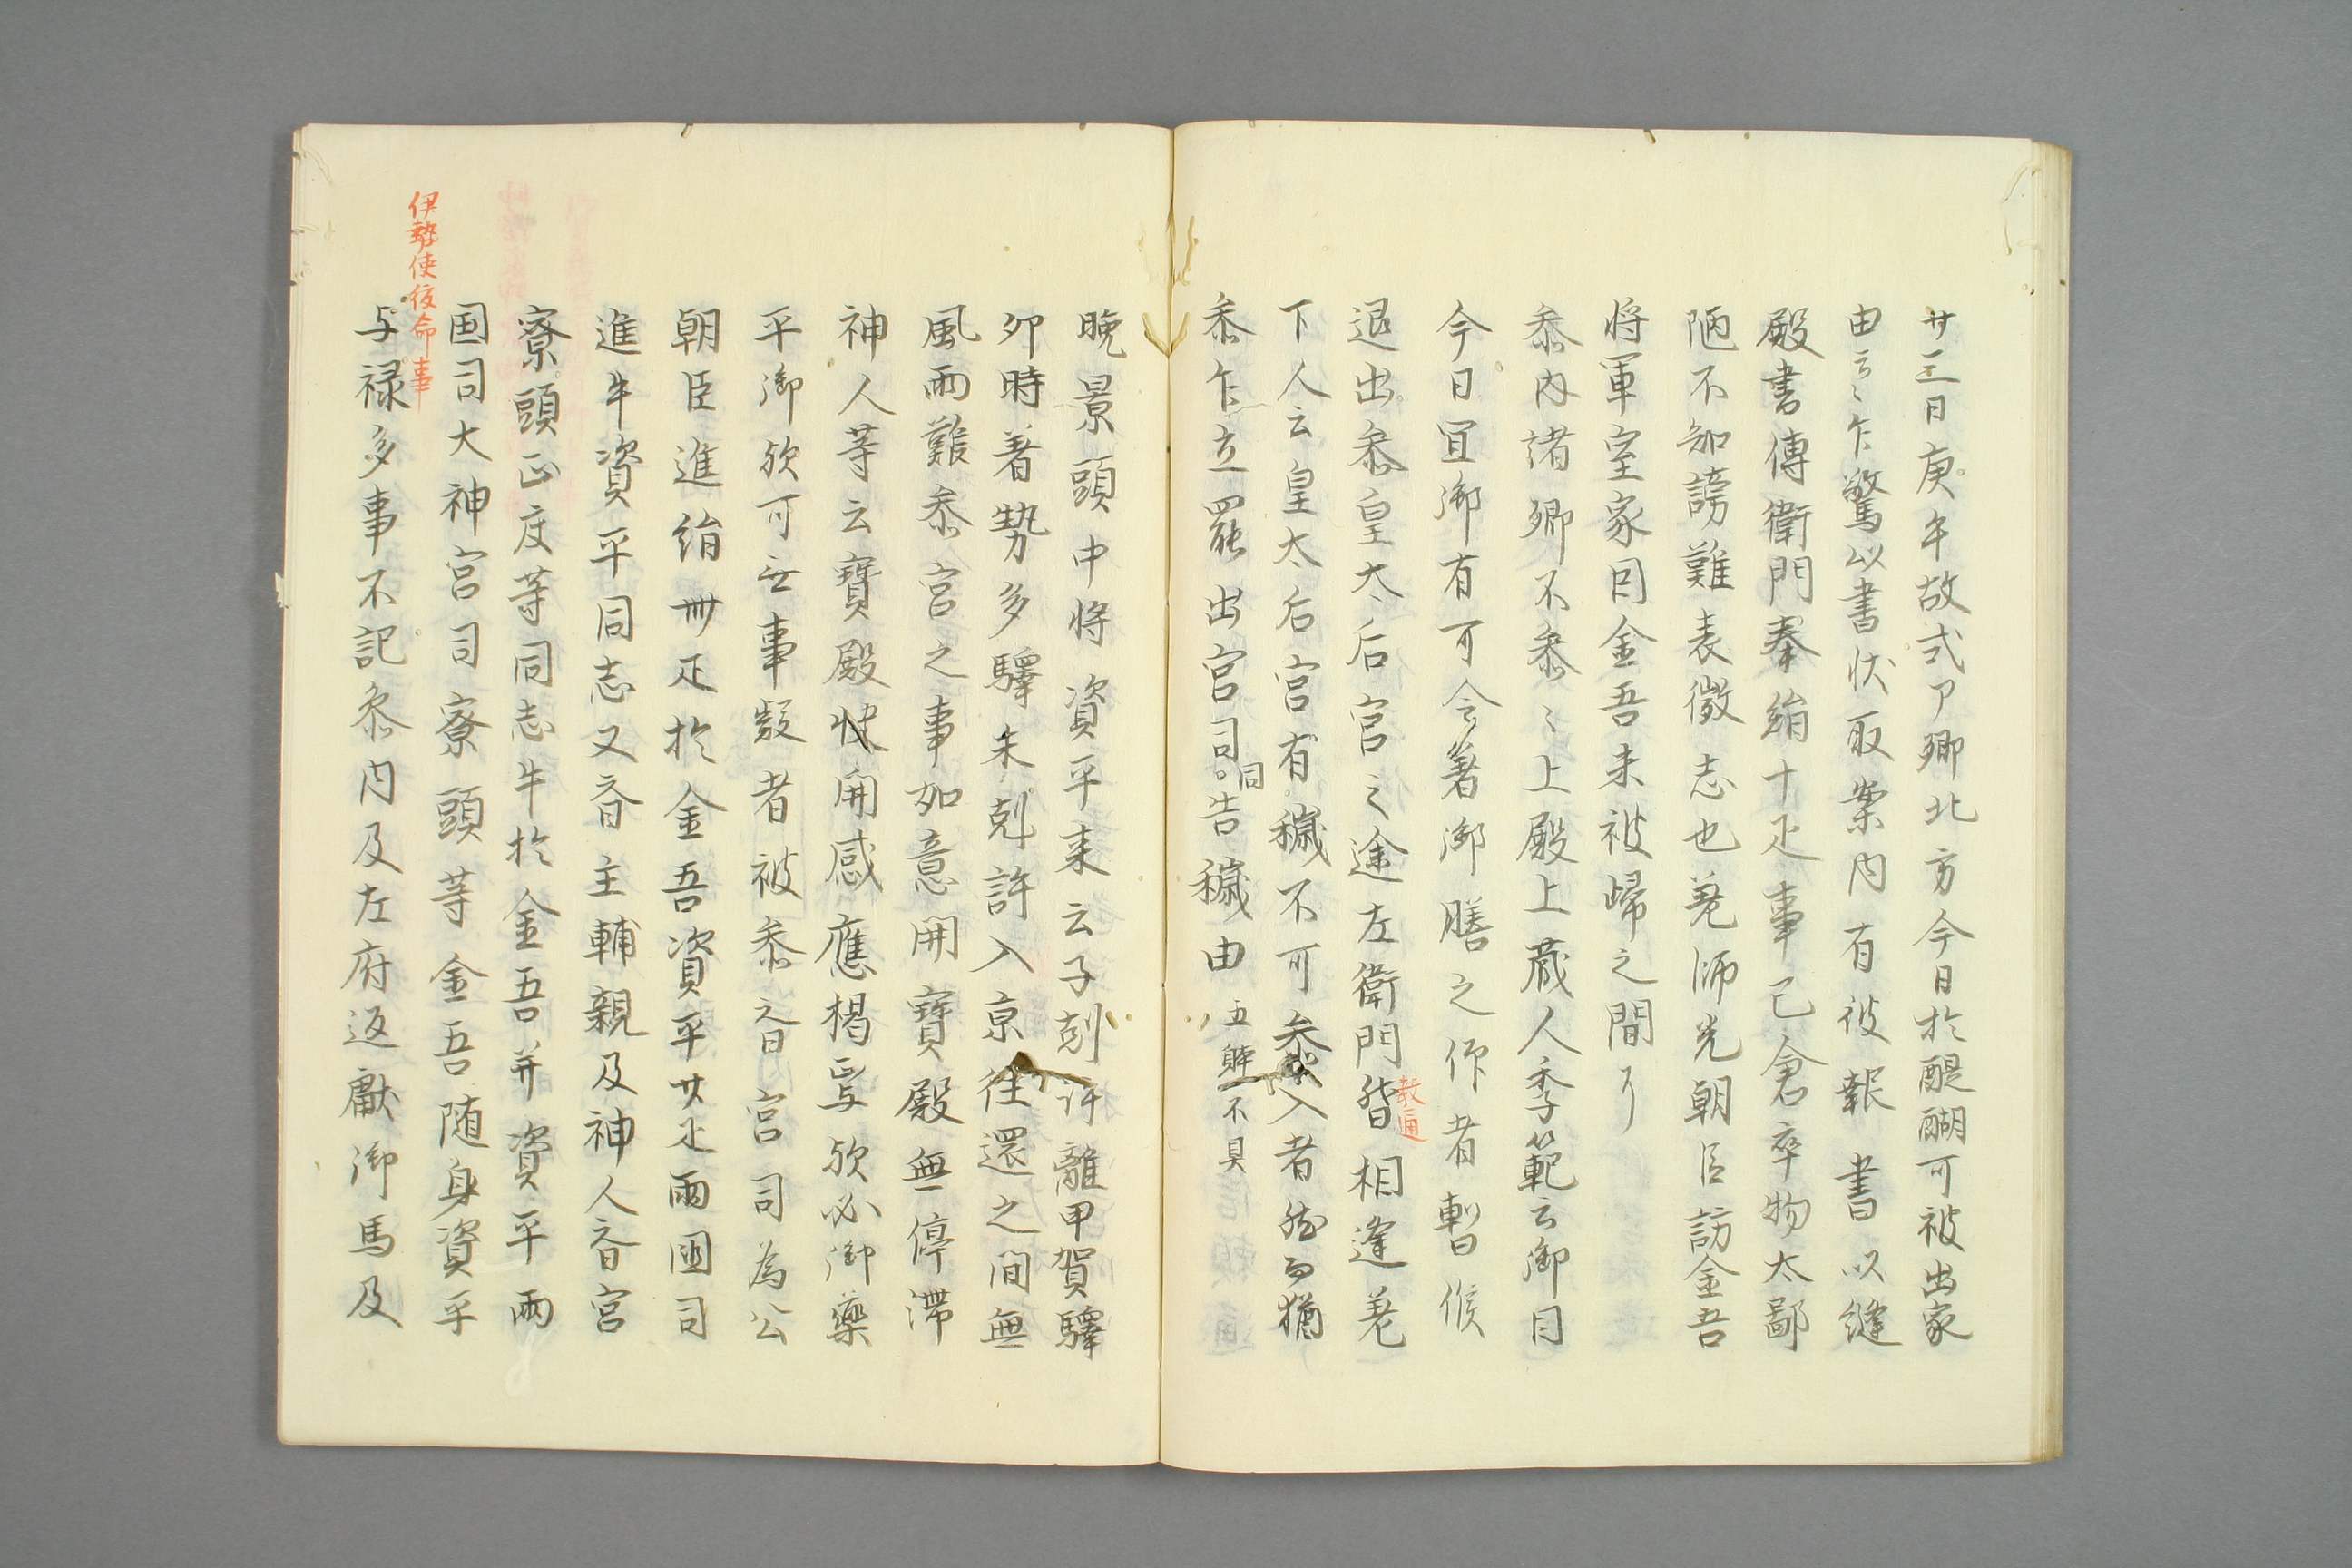 廿三日庚午故式卩卿北方今日於醍醐可被出家
由云々乍驚以書状取案内有彼報書以縫
殿書傳衛門奉絹十疋事已倉卒物太鄙
陋不知謗難表微志也差師光朝臣訪金吾
将軍室家目金吾未被帰之間了
参内諸卿不参々上殿上蔵人季範云御目
今日冝御有可令著御膳之作者暫候
退出参皇太后宮之途左衛門督相逢差
教通
下人云皇太后宮有穢不可参入者然而猶
参乍立罷出宮司。告穢由
同
五躰不具
晩景頭中将資平来云子剋許離甲賀驛
卯時着勢多驛未剋許入京往還之間無
風雨難参宮之事如意開寶殿無停滞
神人等云寶殿快開感應掲焉欤必御藥
平御欤可無事疑者被参斎宮司為公
朝臣進絹卌疋於金吾資平廿疋兩國司
進牛資平同志又斎主輔親及神人斎宮
寮頭正度等同志牛於金吾并資平兩
国司大神宮司寮頭等金吾随身資平
伊勢使復命事
与禄多事不記参内及左府返獻御馬及